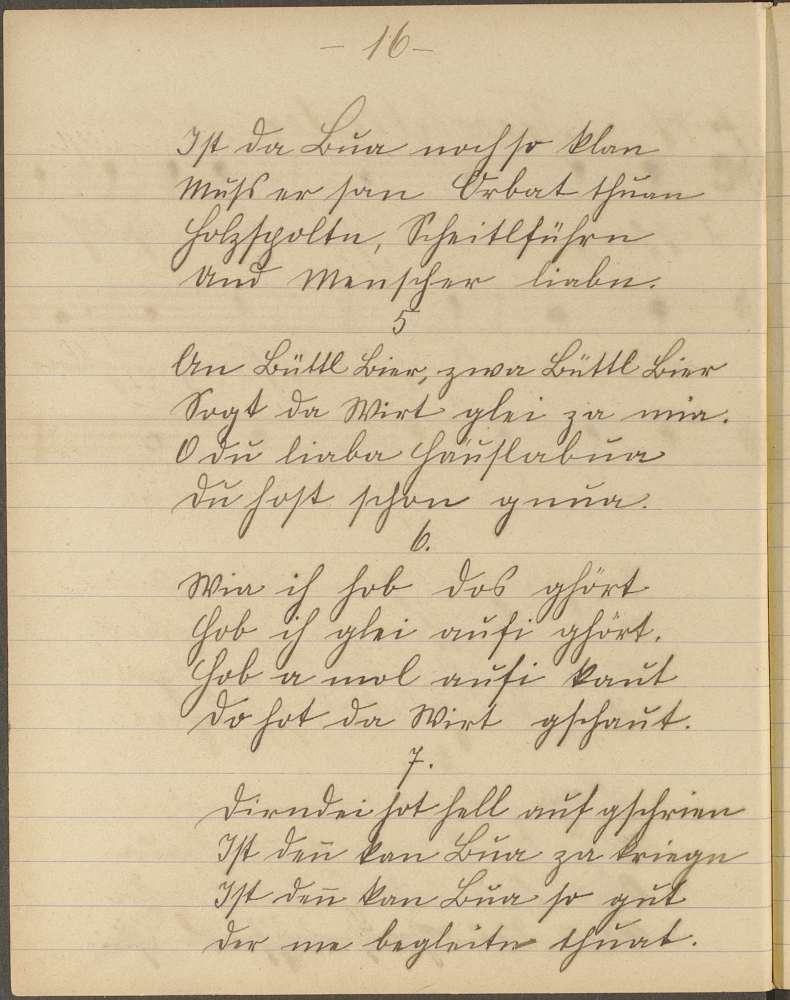 – 16 –
Ist da Bua noch so klan
Muß er san Orbat thuan
Holzspoltn, Scheitlführn
Und Menscher liabn.
5
An Büttl Bier, zwa Büttl Bier
Sogt da Wirt glei za mia.
O du liaba Häuslabua
Du host schon gnua.
6.
Wia ich hob dos ghört
Hob ich glei aufi ghört.
Hob a mol aufi kaut
Do hot da Wirt gschaut.
7.
Dirndei hot hell aufgschrien
Ist deñ kan Bua za kriegn
Ist deñ kan Bua so gut
Der me begleitn thuat.